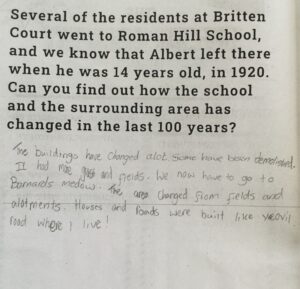 Several of the residents at Britten
Court went to Roman Hill School,
and we know that Albert left there
when he was 14 years old, in 1920.
Can you find out how the school
and the surrounding area has
changed in the last 100 years?
The buildings have changed alot. Some have been demolished.
It had more and fields. We now have to go to
Barnards medow. The area changed from fields and
alotments. Houses and Roads were built like yeovil
road where I live!